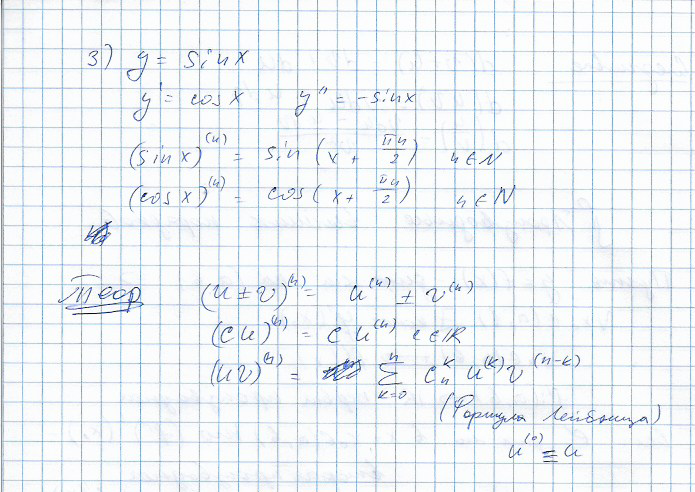 3) y = sin x
y' = cos x y'' = -sin x
(sin x)⁽ⁿ⁾ = sin (x + πn/2) n ∈ N
(cos x)⁽ⁿ⁾ = cos (x + πn/2) n ∈ N
Теор (u ± v)⁽ⁿ⁾ = u⁽ⁿ⁾ ± v⁽ⁿ⁾
(cu)⁽ⁿ⁾ = c u⁽ⁿ⁾ c ∈ ℝ
(uv)⁽ⁿ⁾ = ∑_{k=0}^{n} C_n^k u^{(k)} v^{(n-k)}
(Формула Лейбница)
u⁽⁰⁾ ≡ u